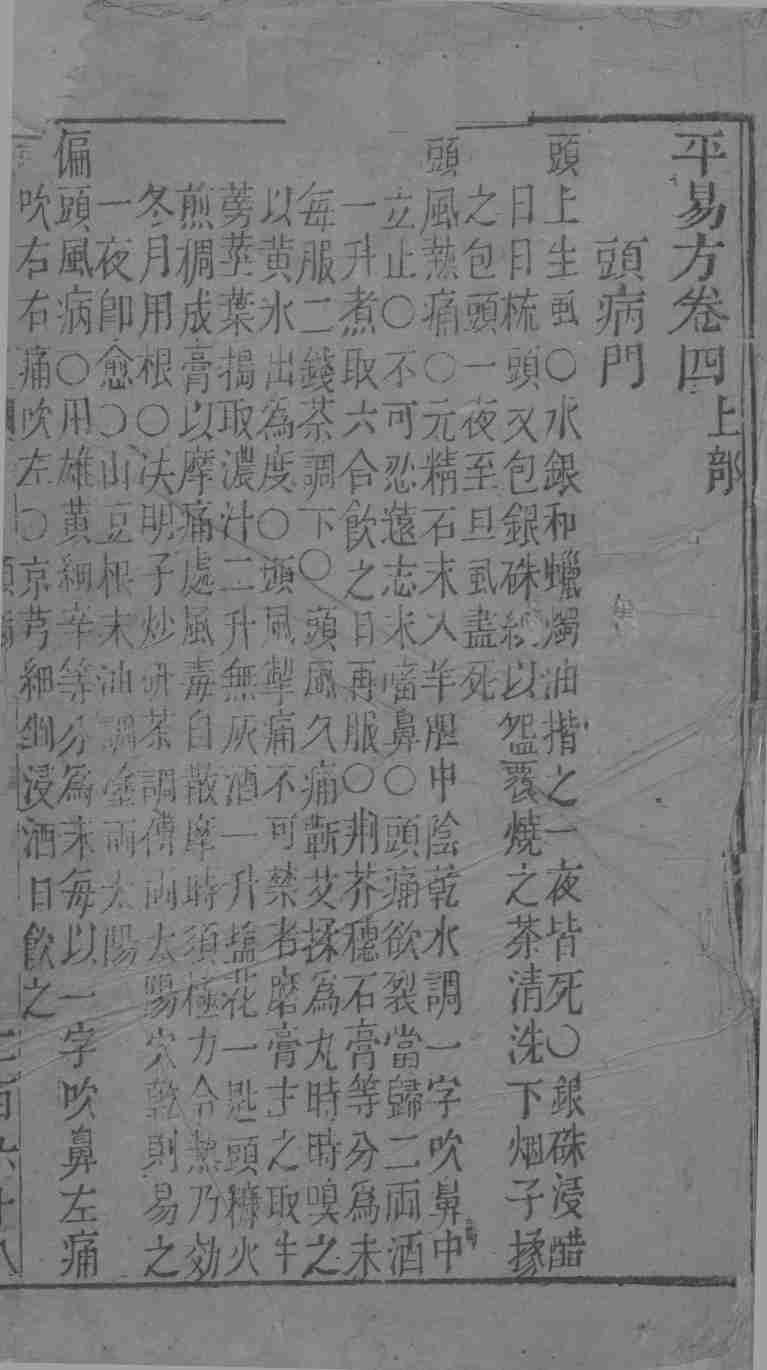 平易方卷四上部
頭病門
頭上生虱○水銀和蠟燭油揩之一夜皆死○銀硃浸醋
日日梳頭又包銀硃紙以盌覆燒之茶清洗下烟子揉
之包頭一夜至旦虱盡死
頭風熱痛○元精石末入羊胆中陰乾水調一字吹鼻中
立止○不可忍遠志末㗜鼻○頭痛欲裂當歸二兩酒
一升煮取六合飲之日再服○荆芥穗石膏等分爲末
每服二錢茶調下○頭風久痛蘄艾揉爲丸時時嗅之
以黃水出爲度○頭風掣痛不可禁者磨膏主之取牛
蒡莖葉搗取濃汁二升無灰酒一升塩花一匙頭糠火
煎稠成膏以摩痛處風毒自散摩時須極力令熱乃効
冬月用根○决明子炒研茶調傅兩太陽穴乾則易之
一夜卽愈○山豆根末油調塗兩太陽
偏頭風病○用雄黃細辛等分爲末每以一字吹鼻左痛
吹右右痛吹左○京芎細剉浸酒日飲之